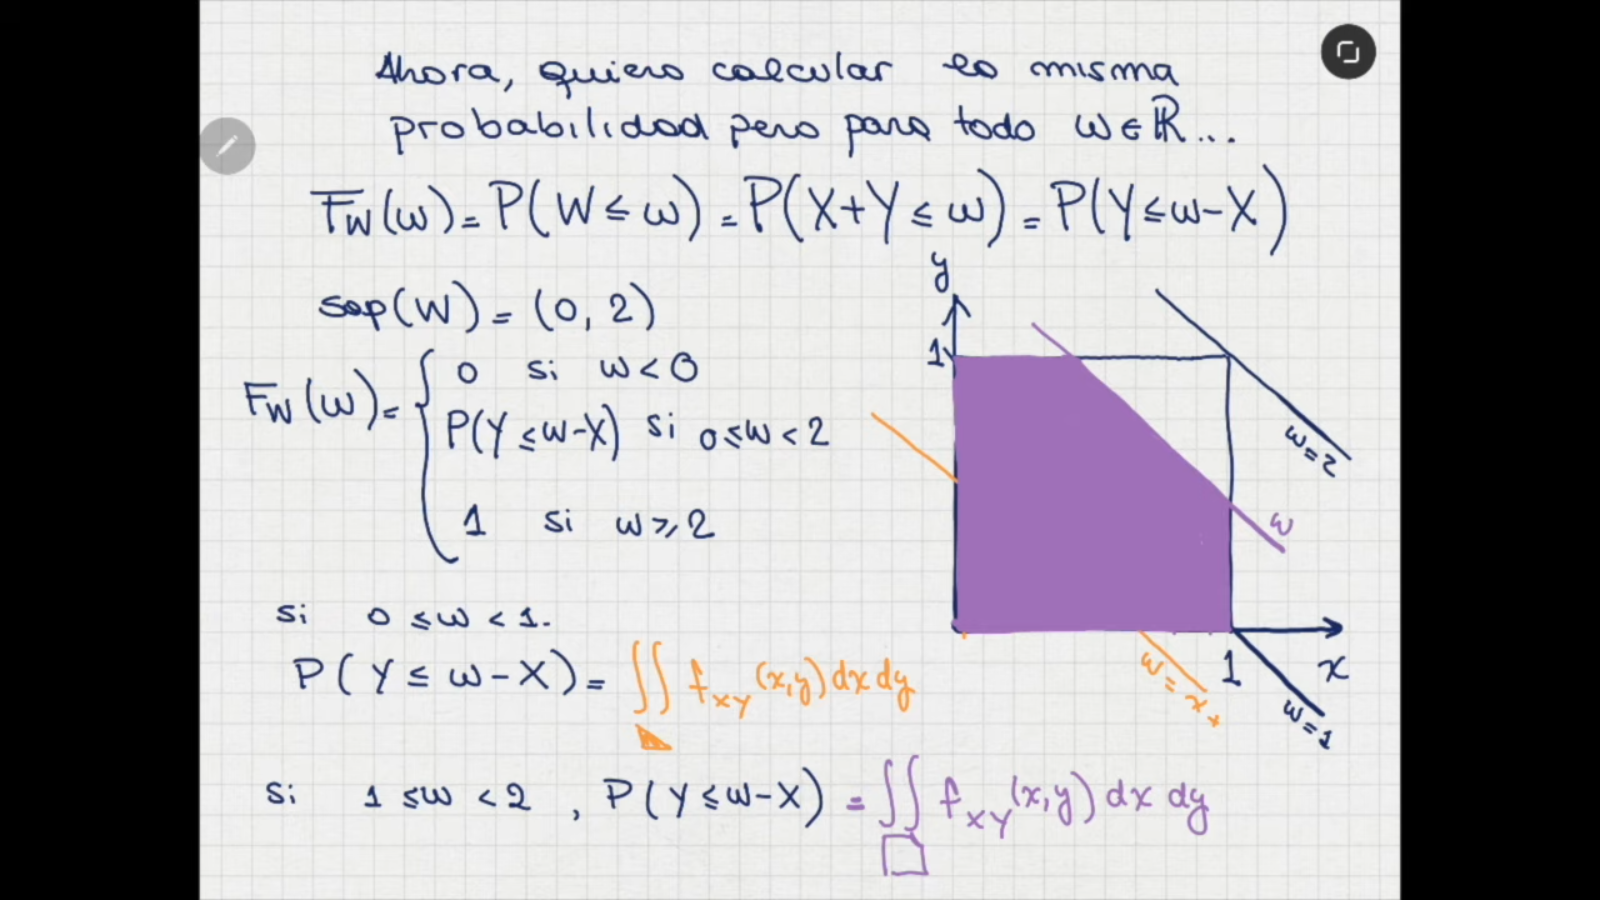 Ahora, quiero calcular la misma
probabilidad pero para todo w∈ℝ...
F_W(w) = P(W ≤ w) = P(X+Y ≤ w) = P(Y ≤ w-X)
sop(W) = (0, 2)
F_W(w) = {
0 si w < 0
P(Y ≤ w-X) si 0 ≤ w < 2
1 si w ≥ 2
y
1
w=2
w
1
x
w=1
si 0 ≤ w < 1.
P(Y ≤ w-X) = ∬ f_XY(x,y) dx dy
si 1 ≤ w < 2, P(Y ≤ w-X) = ∬ f_XY(x,y) dx dy